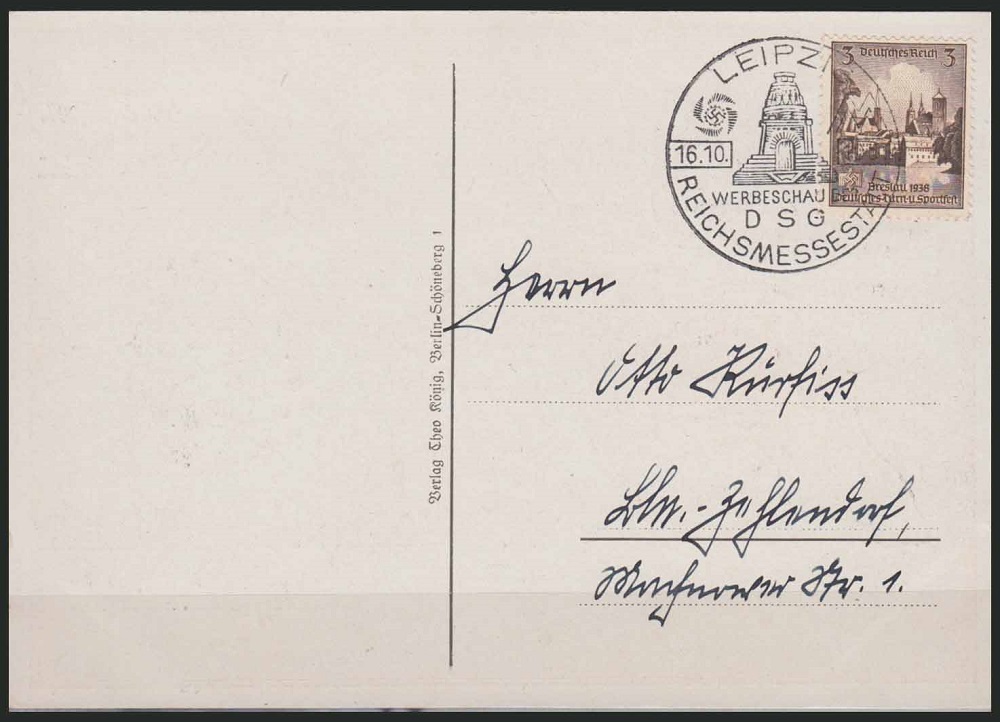 LEIPZI
16.10.
WERBESCHAU
DSG
REICHSMESSESTA
3 Deutsches Reich 3
Breslau 1938
Deutsches Turn-u.Sportfest
Verlag Theo König, Berlin-Schöneberg 1
Herrn
Otto Kurfiss
Bln.-Zehlendorf,
Machnower Str. 1.